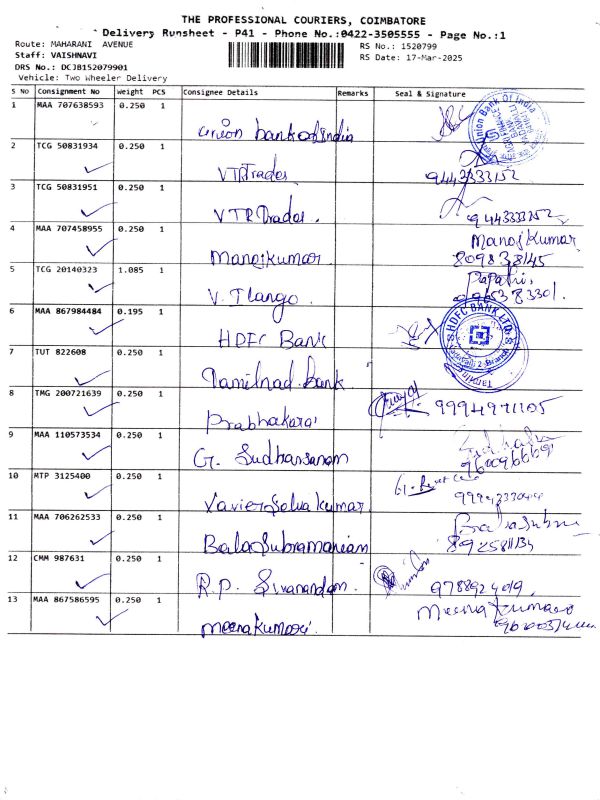 THE PROFESSIONAL COURIERS, COIMBATORE
Delivery Runsheet - P41 - Phone No.:0422-3505555 - Page No.:1
Route: MAHARANI AVENUE RS No.: 1520799
Staff: VAISHNAVI RS Date: 17-Mar-2025
DRS No.: DCJB152079901
Vehicle: Two Wheeler Delivery
S No Consignment No Weight PCS Consignee Details Remarks Seal & Signature
1 MAA 707638593 0.250 1
Union bank of India
Union Bank Of India
2 TCG 50831934 0.250 1
VTR Trades 9443333152
3 TCG 50831951 0.250 1
VTR Trades. 9443333152
4 MAA 707458955 0.250 1 Manoj Kumar
Manojkumar 809838145
5 TCG 20140323 1.085 1
V. Ilango
6 MAA 867984484 0.195 1
HDFC Bank
HDFC BANK LTD
7 TUT 822608 0.250 1
Tamilnad Bank
8 TMG 200721639 0.250 1
Prabhakarai 9994971105
9 MAA 110573534 0.250 1
G. Sudharsanam
10 MTP 3125400 0.250 1
Xavier Selva kumar
11 MAA 706262533 0.250 1
BalaSubramaniam
12 CMM 987631 0.250 1
R.P. Sivanandam 9788924019
13 MAA 867586595 0.250 1 Meena Kumari
Meenakumari